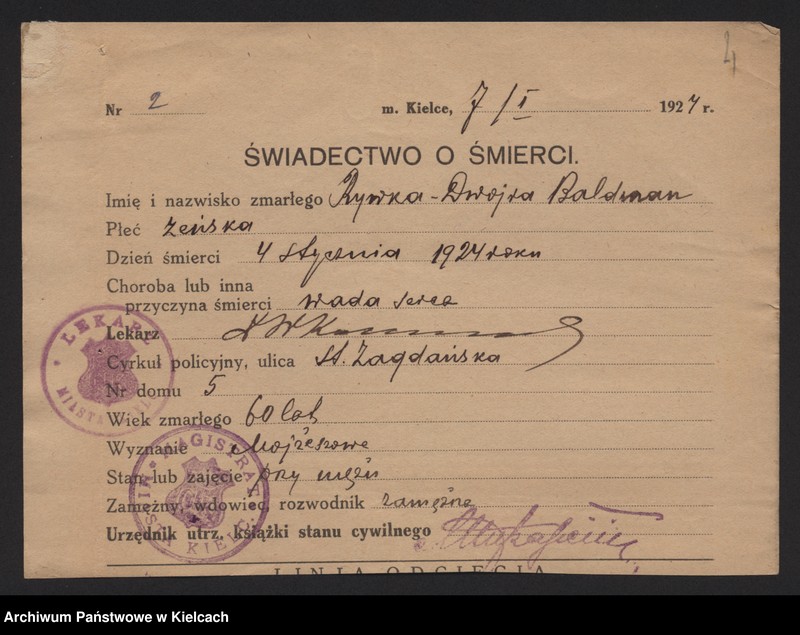 4
Nr 2 m. Kielce, 7/I 1924 r.
ŚWIADECTWO O ŚMIERCI.
Imię i nazwisko zmarłego Rywka-Dwojra Baldman
Płeć żeńska
Dzień śmierci 4 stycznia 1924 roku
Choroba lub inna
przyczyna śmierci wada serca
Lekarz
Cyrkuł policyjny, ulica St. Zagdańska
Nr domu 5
Wiek zmarłego 60 lat
Wyznanie Mojżeszowe
Stan lub zajęcie przy mężu
Zamężny, wdowiec, rozwodnik zamężna
Urzędnik utrz. książki stanu cywilnego
LINIA ODCIĘCIA
LEKARZ MIASTA
MAGISTRAT MIASTA KIELC
Archiwum Państwowe w Kielcach